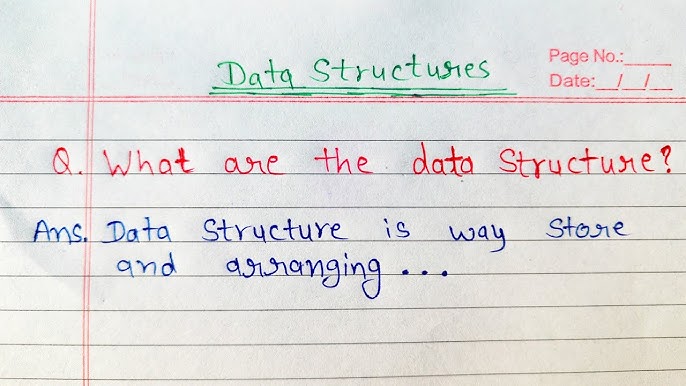 Data Structures
Page No.:
Date: / /
Q. What are the data Structure?
Ans. Data Structure is way store
and arranging ...